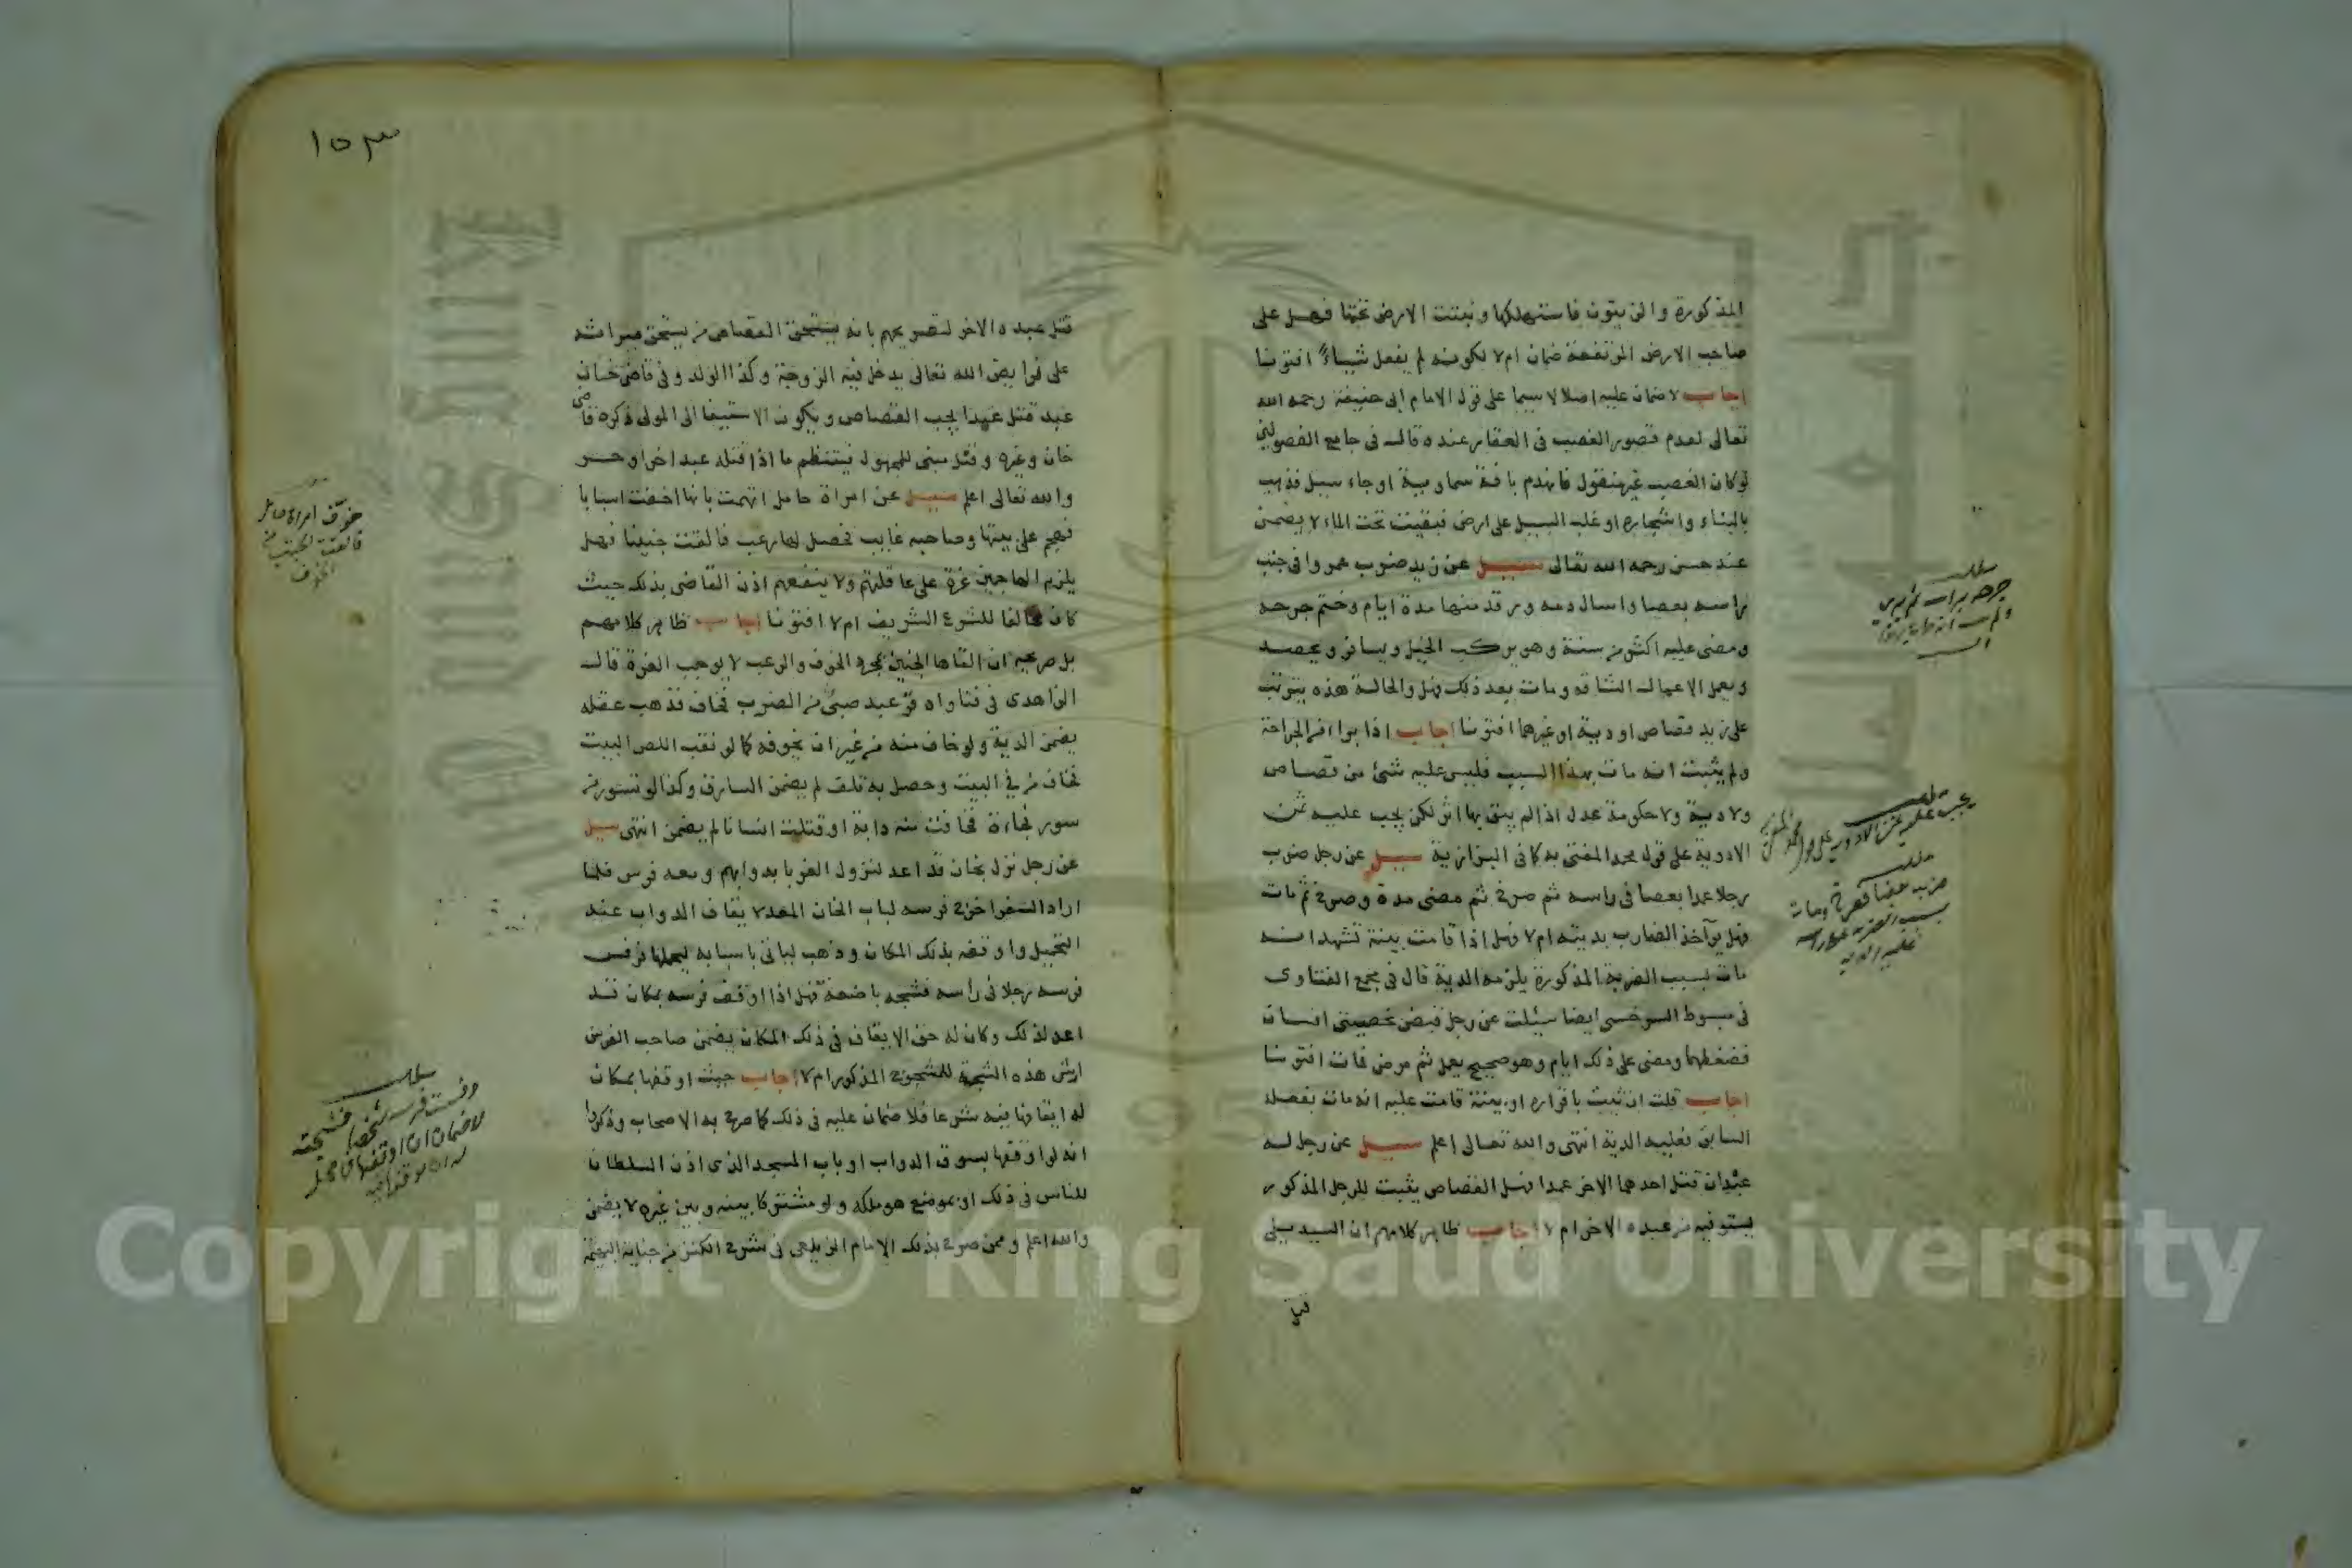 المذكورة والزيتون فاستهلكها ونبتت الارض تحتها فهل على
صاحب الارض المرتفعة ضمان ام لا لكونه لم يفعل شيأ افتونا
اجاب لا ضمان عليه اصلا لا سيما على قول الامام ابى حنيفة رحمه الله
تعالى لعدم تصور الغصب فى العقار عنده قال فى جامع الفصولين
لو كان الغصب غير منقول فانهدم بافة سماوية او جاء سيل فذهب
بالبناء واشجاره او غلب السيل على ارض فبقيت تحت الماء لا يضمن
عند حسن رحمه الله تعالى سيل عن زيد ضرب عمروا فى جنب
راسه بعصا واسال دمه ورقد منها مدة ايام وختم جرحه
ومضى عليه اكثر من سنة وهو يركب الخيل ويسافر ويحصد
ويعمل الاعمال الشاقه ومات بعد ذلك فهل والحالة هذه يترتب
على زيد قصاص او دية او غيرهما افتونا اجاب اذا برا اثر الجراحة
ولم يثبت انه مات بهذا السبب فليس عليه شئ من قصاص
ولا دية ولا حكومة عدل اذا لم يبق بها اثر لكن يجب عليه ثمن
الادوية على قول محمد المفتى به كما فى البزازية سيل عن رجل ضرب
رجلا عمدا بعصا فى راسه ثم صرخ ثم مضى مدة وصرخ ثم مات
فهل يوآخذ الضارب بديته ام لا فهل اذا قامت بينة تشهد انه
مات بسبب الضربة المذكورة يلزمه الدية قال فى مجمع الفتاوى
فى مبسوط السرخسى ايضا سيلت عن رجل قبض خصيتى انسان
فضغطهما ومضى على ذلك ايام وهو صحيح يعمل ثم مرض فمات افتونا
اجاب قلت ان ثبت باقراره او بينة قامت عليه انه مات بفعله
السابق فعليه الدية انتهى والله تعالى اعلم سيل عن رجل له
عبدان قتل احدهما الاخر عمدا فهل القصاص يثبت للرجل المذكور
يستوفيه من عبده الاخر ام لا اجاب ظاهر كلامهم ان السيد
١٥٣
قتل عبده الاخر لتصريحهم بانه يستحق القصاص من يستحق ميراثه
على فرايض الله تعالى يدخل فيه الزوجة وكذا الولد وفى قاضى خان
عبد قتل عمدا يجب القصاص ويكون الاستيفا الى المولى ذكره قاضى
خان وغيره وقتل مبنى للمجهول فينتظم ما اذا قتله عبد اخر او حر
والله تعالى اعلم سيل عن امراة حامل اتهمت بانها اخفت اسبابا
فهجم على بيتها وصاحبه غايب فحصل لها رعب فالقت جنينا فهل
يلزم الهاجمين غرة على عاقلتهم ولا ينفعهم اذن القاضى بذلك حيث
كان مخالفا للشرع الشريف ام لا افتونا اجاب ظاهر كلامهم
بل صريحه ان القاها الجنين بمجرد الخوف والرعب لا يوجب الغرة قال
الزاهدى فى فتاواه فزع عبد صبى من الضرب فخاف فذهب عقله
يضمن الدية ولو خاف منه من غير ان يخوفه كما لو نقب اللص البيت
فخاف من فى البيت وحصل به تلف لم يضمن السارق وكذا لو تسور من
سور فجاءة فخافت منه دابة او قتلت انسانا لم يضمن انتهى سيل
عن رجل نزل بخان قد اعد لنزول الغربا بدوابهم ومعه فرس فلما
اراد السفر اخرج فرسه لباب الخان المعد لايقاف الدواب عند
التحميل واوقفه بذلك المكان وذهب لياتى باسبابه ليحملها فرفس
فرسه رجلا فى راسه فشجه باضعة فهل اذا اوقف فرسه بمكان قد
اعد لذلك وكان له حق الايقاف فى ذلك المكان يضمن صاحب الفرس
ارش هذه الشجة للمشجوج المذكور ام لا اجاب حيث اوقفها بمكان
له ايقافها فيه شرعا فلا ضمان عليه فى ذلك كما صرح به الاصحاب وذكروا
انه لو اوقفها بسوق الدواب او باب المسجد الذى اذن السلطان
للناس فى ذلك او بموضع هو ملكه ولو مشتركا بينه وبين غيره لا يضمن
والله اعلم وممن صرح بذلك الامام الزيلعى فى شرح الكنز من جناية البهيمة
خوف امراة حامل
فالقت الجنين من
الخوف
مطلب
رفست فرسه شخصا فشجته
لا ضمان ان اوقفها فى محل
Copyright © King Saud University
King Saud
1957